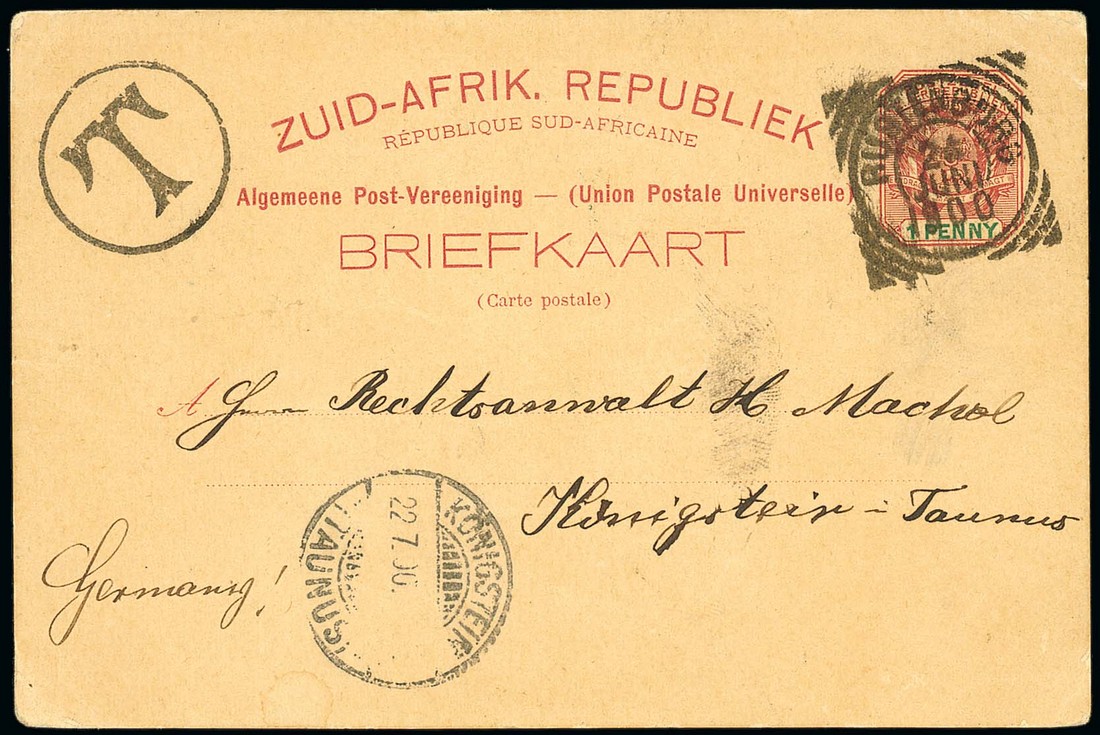 T
ZUID-AFRIK. REPUBLIEK
RÉPUBLIQUE SUD-AFRICAINE
Algemeene Post-Vereeniging — (Union Postale Universelle)
BRIEFKAART
(Carte postale)
JUNI
1900
1 PENNY
A Herrn Rechtsanwalt H Machol
Königstein - Taunus
Germany!
KÖNIGSTEIN
22.7.00.
(TAUNUS)